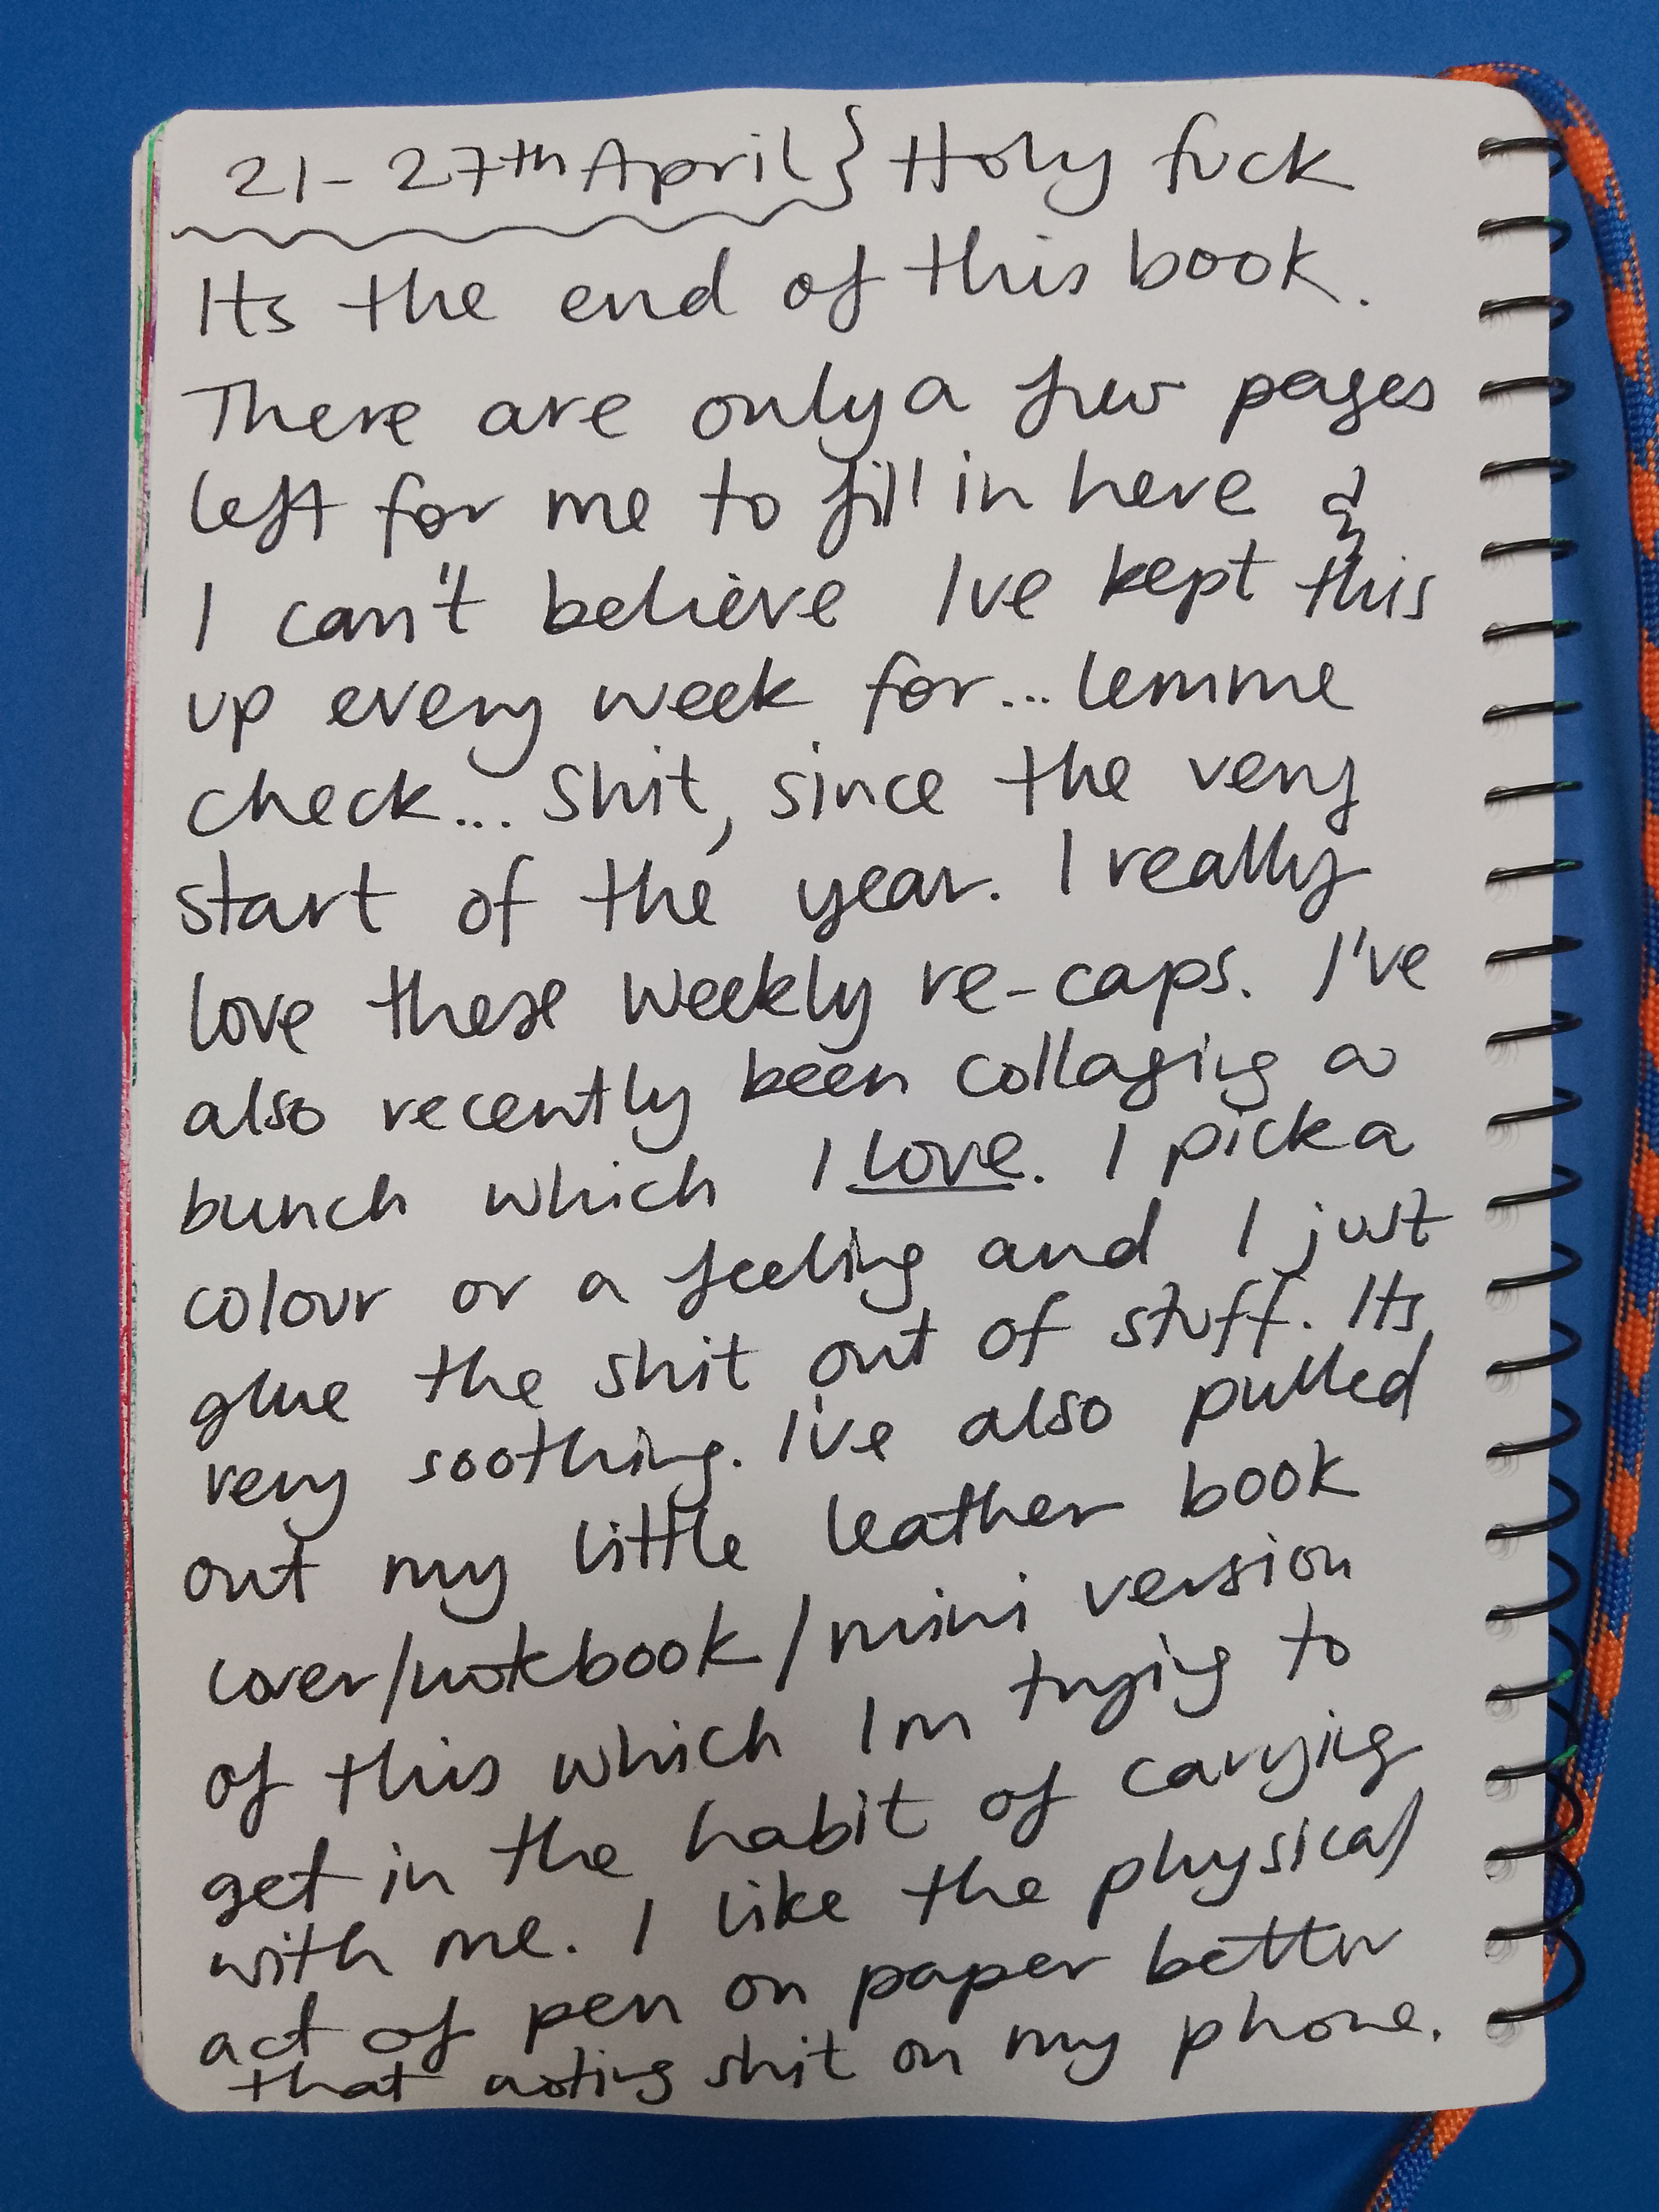 21-27th April} Holy fuck
Its the end of this book.
There are only a few pages
left for me to fill in here &
I can't believe Ive kept this
up every week for... lemme
check... shit, since the very
start of the year. I really
love these weekly re-caps. I've
also recently been collaging a
bunch which I love. I pick a
colour or a feeling and I just
glue the shit out of stuff. Its
very soothing. I've also pulled
out my little leather book
cover/notebook/mini version
of this which Im trying to
get in the habit of carrying
with me. I like the physical
act of pen on paper better
that noting shit on my phone.